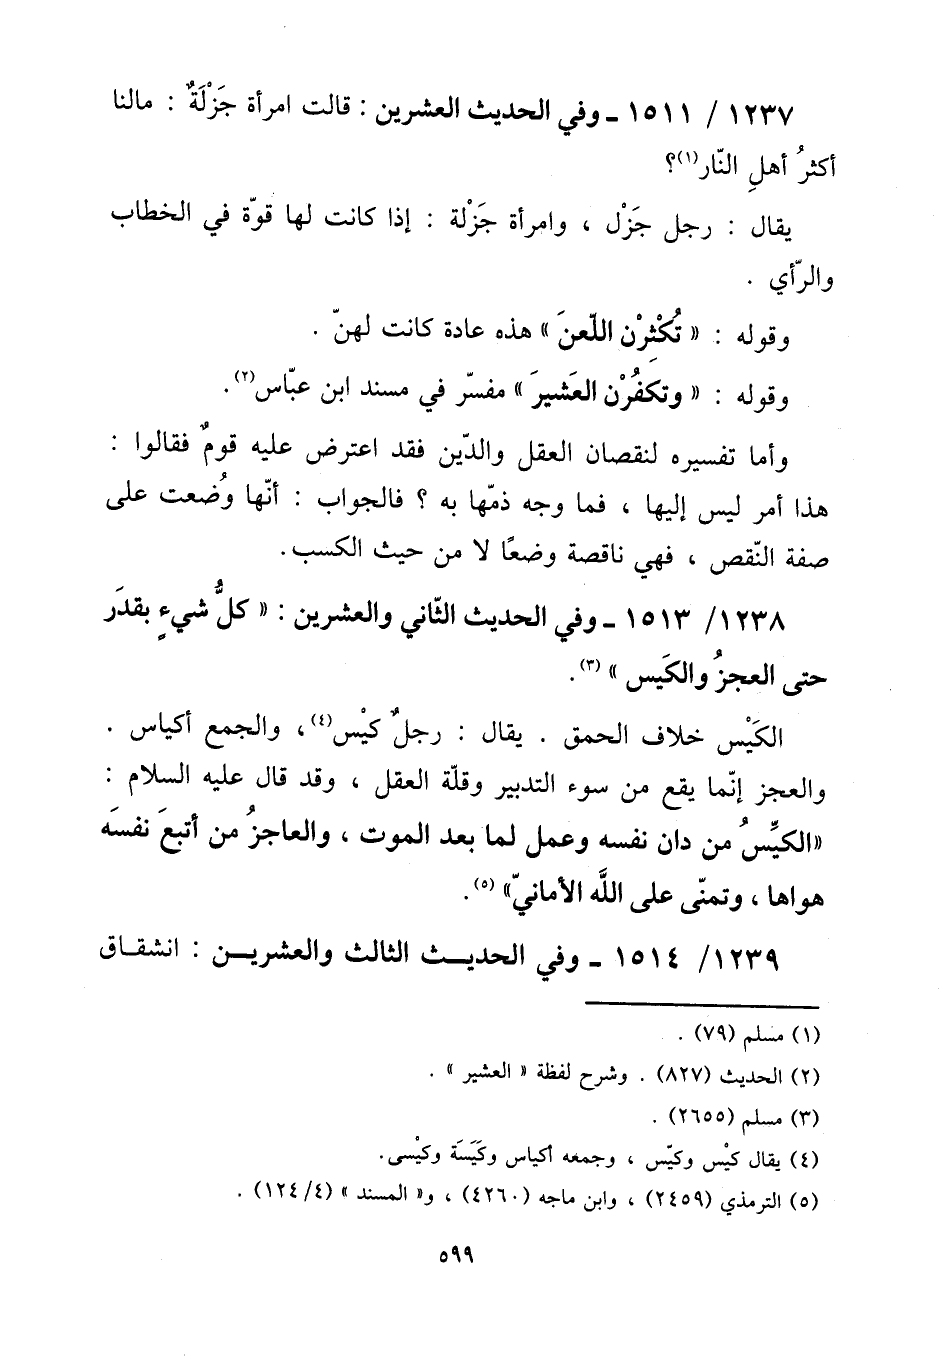 ١٢٣٧ / ١٥١١ ـ وفي الحديث العشرين : قالت امرأة جَزْلَةٌ : مالنا
أكثرُ أهلِ النّار(١)؟
يقال : رجل جَزْل ، وامرأة جَزْلة : إذا كانت لها قوّة في الخطاب
والرّأي .
وقوله : « تُكْثِرْن اللّعنَ » هذه عادة كانت لهنّ .
وقوله : « وتكفُرْن العَشيرَ » مفسّر في مسند ابن عبّاس(٢).
وأما تفسيره لنقصان العقل والدّين فقد اعترض عليه قومٌ فقالوا :
هذا أمر ليس إليها ، فما وجه ذمّها به ؟ فالجواب : أنّها وُضعت على
صفة النّقص ، فهي ناقصة وضعًا لا من حيث الكسب.
١٢٣٨ /١٥١٣ ـ وفي الحديث الثّاني والعشرين : « كلُّ شيءٍ بقدَر
حتى العجزُ والكَيس » (٣).
الكَيْس خلاف الحمق . يقال : رجلٌ كيْس(٤)، والجمع أكياس .
والعجز إنّما يقع من سوء التدبير وقلّة العقل ، وقد قال عليه السلام :
«الكيِّسُ من دان نفسه وعمل لما بعد الموت ، والعاجزُ من أتبعَ نفسَه
هواها ، وتمنّى على اللَّه الأمانيّ» (٥).
١٢٣٩ /١٥١٤ ـ وفي الحديث الثالث والعشرين : انشقاق
(١) مسلم (٧٩) .
(٢) الحديث (٨٢٧) . وشرح لفظة « العشير » .
(٣) مسلم (٢٦٥٥) .
(٤) يقال كيْس وكيّس ، وجمعه أكياس وكَيَسَة وكيْسى.
(٥) الترمذي (٢٤٥٩) ، وابن ماجه (٤٢٦٠) ، و« المسند » (٤/ ١٢٤) .
٥٩٩